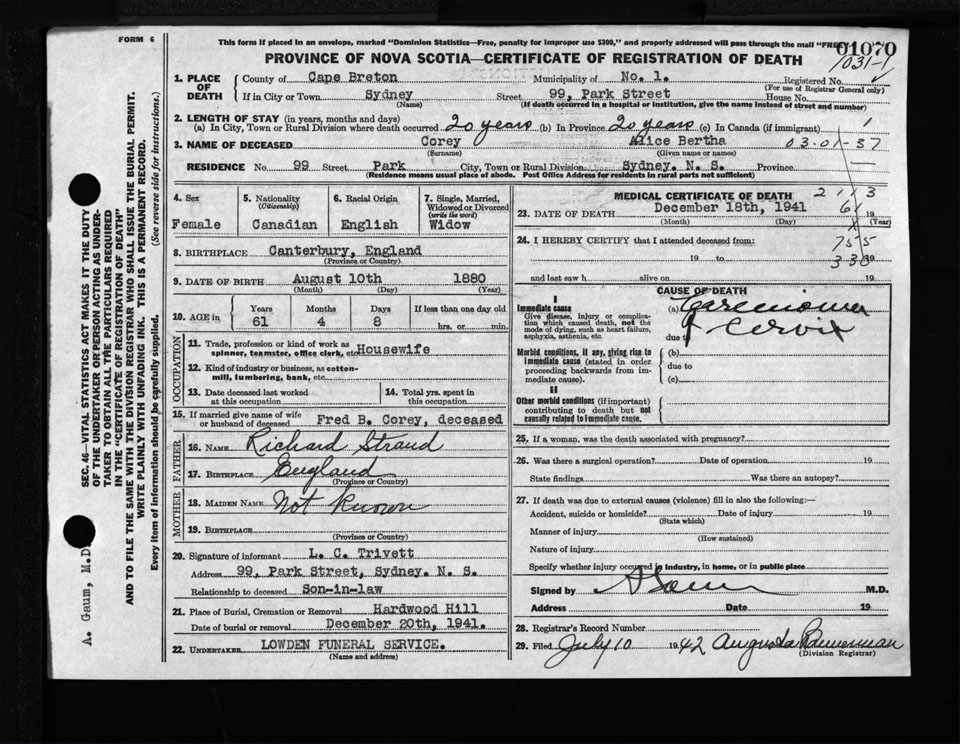 FORM 6
This form if placed in an envelope, marked "Dominion Statistics—Free, penalty for improper use $300," and properly addressed will pass through the mail "FREE"
01070
1031-1
PROVINCE OF NOVA SCOTIA—CERTIFICATE OF REGISTRATION OF DEATH
1. PLACE OF DEATH
County of Cape Breton Municipality of No. 1. Registered No.
(For use of Registrar General only)
If in City or Town Sydney Street 99, Park Street House No.
(Name) (If death occurred in a hospital or institution, give the name instead of street and number)
2. LENGTH OF STAY (in years, months and days)
(a) In City, Town or Rural Division where death occurred 20 years (b) In Province 20 years (c) In Canada (if immigrant)
3. NAME OF DECEASED Corey Alice Bertha 03-01-37
(Surname) (Given name or names)
RESIDENCE No. 99 Street Park City, Town or Rural Division Sydney, N. S. Province
(Residence means usual place of abode. Post Office Address for residents in rural parts not sufficient)
4. Sex
Female
5. Nationality
(Citizenship)
Canadian
6. Racial Origin
English
7. Single, Married, Widowed or Divorced
(write the word)
Widow
8. BIRTHPLACE Canterbury, England
(Province or Country)
9. DATE OF BIRTH August 10th 1880
(Month) (Day) (Year)
10. AGE in Years Months Days If less than one day old
61 4 8 hrs. or min.
OCCUPATION
11. Trade, profession or kind of work as spinner, teamster, office clerk, etc. Housewife
12. Kind of industry or business, as cotton-mill, lumbering, bank, etc.
13. Date deceased last worked at this occupation
14. Total yrs. spent in this occupation
15. If married give name of wife or husband of deceased Fred B. Corey, deceased
FATHER
16. NAME Richard Stroud
17. BIRTHPLACE England
(Province or Country)
MOTHER
18. MAIDEN NAME Not Known
19. BIRTHPLACE
(Province or Country)
20. Signature of informant L. C. Trivett
Address 99, Park Street, Sydney. N. S.
Relationship to deceased Son-in-law
21. Place of Burial, Cremation or Removal Hardwood Hill
Date of burial or removal December 20th, 1941.
22. UNDERTAKER LOWDEN FUNERAL SERVICE.
(Name and address)
MEDICAL CERTIFICATE OF DEATH 2 1 1 3
23. DATE OF DEATH December 18th, 1941 61 19
(Month) (Day) (Year)
24. I HEREBY CERTIFY that I attended deceased from:
755
19 to 330 19
and last saw h alive on 19
CAUSE OF DEATH
I
Immediate cause
Give disease, injury or complication which caused death, not the mode of dying, such as heart failure, asphyxia, asthenia, etc.
(a) Carcinoma
due to of Cervix
Morbid conditions, if any, giving rise to immediate cause (stated in order proceeding backwards from immediate cause).
(b)
due to
(c)
II
Other morbid conditions (if important) contributing to death but not causally related to immediate cause.
25. If a woman, was the death associated with pregnancy?
26. Was there a surgical operation? Date of operation 19
State findings Was there an autopsy?
27. If death was due to external causes (violence) fill in also the following:—
Accident, suicide or homicide? Date of injury 19
(State which)
Manner of injury
(How sustained)
Nature of injury
Specify whether injury occurred in industry, in home, or in public place
Signed by A Gaum M.D.
Address Date 19
28. Registrar's Record Number
29. Filed July 10 1942 Augusta Bannerman
(Division Registrar)
SEC. 46—VITAL STATISTICS ACT MAKES IT THE DUTY
OF THE UNDERTAKER OR PERSON ACTING AS UNDER-
TAKER TO OBTAIN ALL THE PARTICULARS REQUIRED
IN THE "CERTIFICATE OF REGISTRATION OF DEATH"
AND TO FILE THE SAME WITH THE DIVISION REGISTRAR WHO SHALL ISSUE THE BURIAL PERMIT.
WRITE PLAINLY WITH UNFADING INK. THIS IS A PERMANENT RECORD.
Every item of information should be carefully supplied. (See reverse side for instructions.)
A. Gaum, M.D.